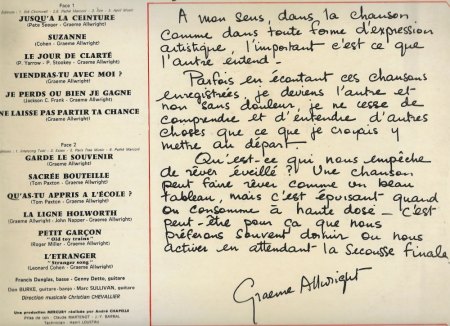 Face 1
JUSQU'A LA CEINTURE
(Pete Seeger - Graeme Allwright)
SUZANNE
(Cohen - Graeme Allwright)
LE JOUR DE CLARTÉ
(P. Yarrow - P. Stookey - Graeme Allwright)
VIENDRAS-TU AVEC MOI ?
(Graeme Allwright)
JE PERDS OU BIEN JE GAGNE
(Jackson C. Frank - Graeme Allwright)
NE LAISSE PAS PARTIR TA CHANCE
(Graeme Allwright)
Face 2
GARDE LE SOUVENIR
(Graeme Allwright)
SACRÉE BOUTEILLE
(Tom Paxton - Graeme Allwright)
QU'AS-TU APPRIS A L'ÉCOLE ?
(Tom Paxton - Graeme Allwright)
LA LIGNE HOLWORTH
(Graeme Allwright - John Napper - Graeme Allwright)
PETIT GARÇON
"Old toy trains"
(Roger Miller - Graeme Allwright)
L'ETRANGER
"Stranger song"
(Leonard Cohen - Graeme Allwright)
Francis Douglas, basse - Genny Detto, guitare
Don BURKE, guitare - banjo - Marc SULLIVAN, guitare
Direction musicale Christian CHEVALLIER
Une production MERCURY réalisée par André CHAPELLE
Prise de son : Claude MARTENOT - J.-Y. BARRAL
A mon sens, dans la chanson
comme dans toute forme d'expression
artistique, l'important c'est ce que
l'autre entend.
Parfois en écoutant ces chansons
enregistrées, je deviens l'autre et
non sans douleur, je ne cesse de
comprendre et d'entendre d'autres
choses que ce que je croyais y
mettre au départ.
Qu'est-ce qui nous empêche
de rêver éveillé ? Une chanson
peut faire rêver comme un beau
tableau, mais c'est épuisant quand
on consomme à haute dose. C'est
peut-être pour ça que nous
préférons souvent dormir ou nous
activer en attendant la secousse finale
Graeme Allwright